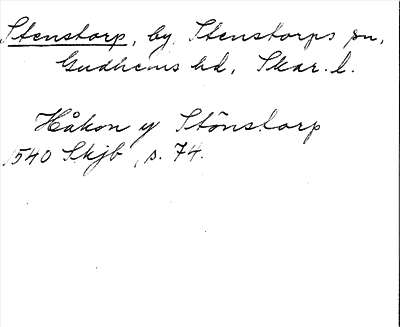 Stenstorp, by. Stenstorps sn,
Gudhems hd, Skar. l.
Håkon y Stönstorp
1540 Skjb, s. 74.